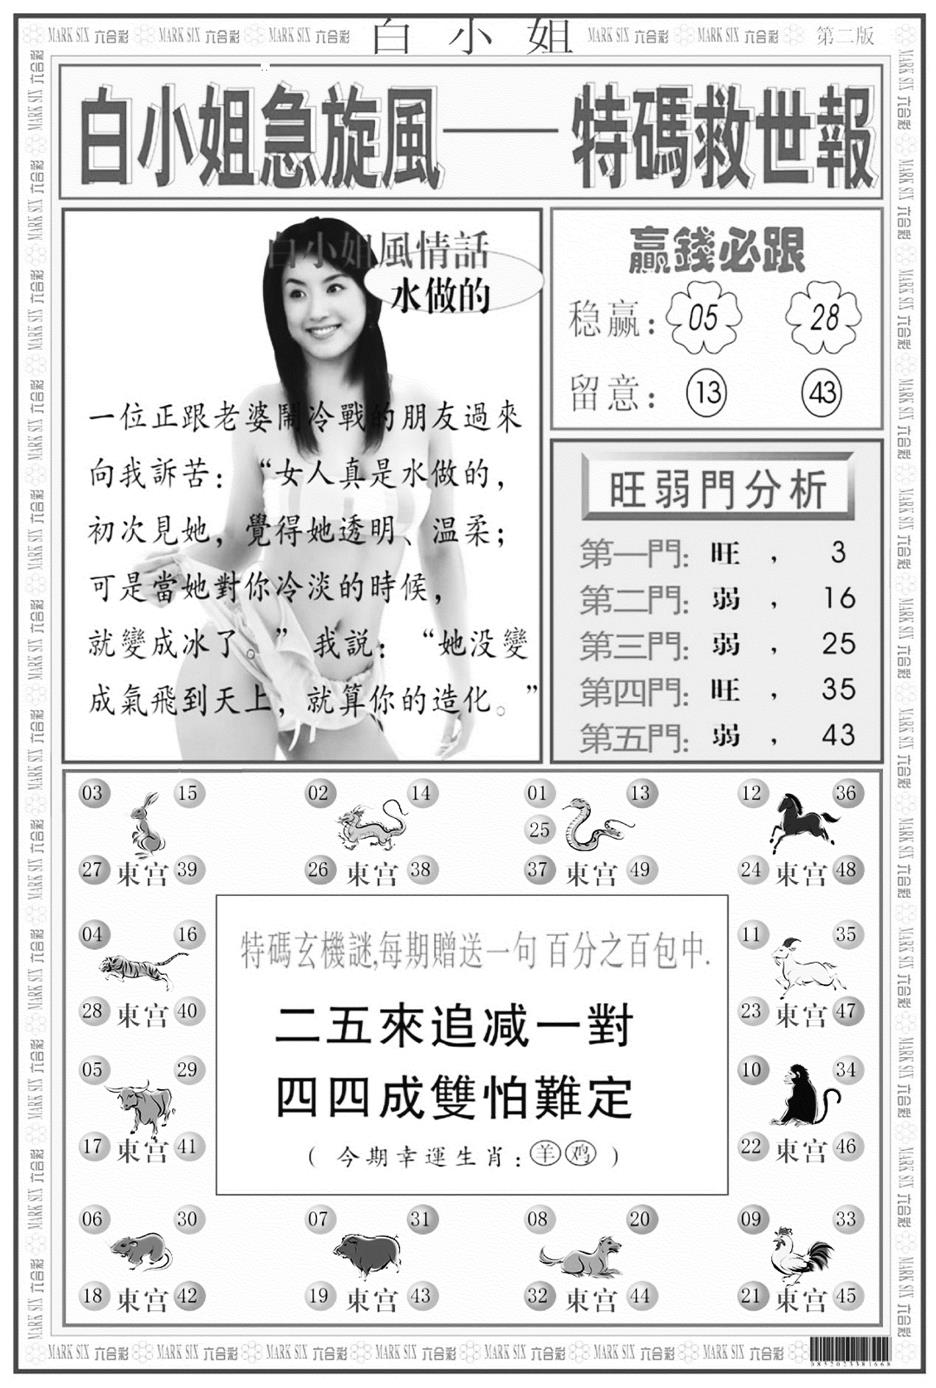 MARK SIX 六合彩 MARK SIX 六合彩 MARK SIX 六合彩 白小姐 MARK SIX 六合彩 MARK SIX 六合彩 第二版
白小姐急旋風——特碼救世報
白小姐風情話
水做的
一位正跟老婆鬧冷戰的朋友過來
向我訴苦：“女人真是水做的，
初次見她，覺得她透明、温柔；
可是當她對你冷淡的時候，
就變成冰了。” 我説：“她没變
成氣飛到天上，就算你的造化。”
贏錢必跟
稳赢： 05 28
留意： 13 43
旺弱門分析
第一門: 旺 ， 3
第二門: 弱 ， 16
第三門: 弱 ， 25
第四門: 旺 ， 35
第五門: 弱 ， 43
03 15 02 14 01 13 12 36
25
27 東宫 39 26 東宫 38 37 東宫 49 24 東宫 48
04 16 11 35
28 東宫 40 23 東宫 47
05 29 10 34
17 東宫 41 22 東宫 46
特碼玄機謎,每期贈送一句 百分之百包中.
二五來追减一對
四四成雙怕難定
( 今期幸運生肖：羊 鸡 )
06 30 07 31 08 20 09 33
18 東宫 42 19 東宫 43 32 東宫 44 21 東宫 45
MARK SIX 六合彩 MARK SIX 六合彩 MARK SIX 六合彩 MARK SIX 六合彩 MARK SIX 六合彩 MARK SIX 六合彩 MARK SIX 六合彩